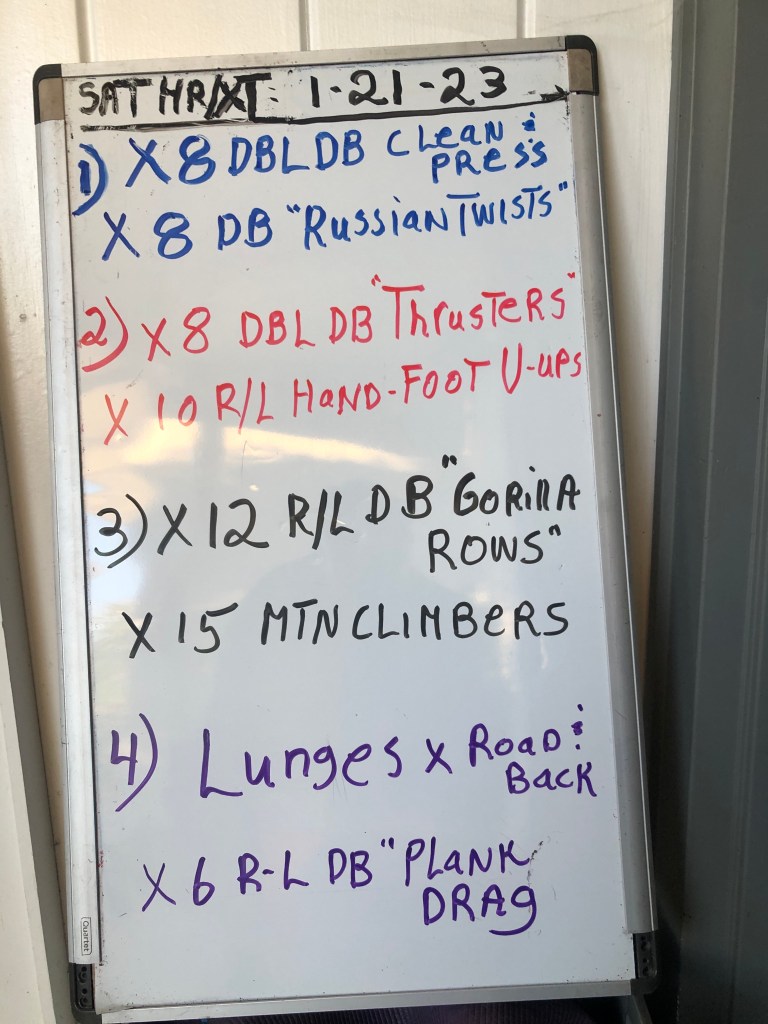 SAT HR/XT: 1-21-23
1) X8 DBL DB CLEAN &
PRESS
X 8 DB "RussianTwisTs"
2) X8 DBL DB "ThrusTeRs"
X 10 R/L HAND-FOOT V-ups
3) X 12 R/L DB "GoRillA
ROWS"
X 15 MTN CLIMBERS
4) Lunges x RoaD &
Back
X 6 R-L DB "PLANK
DRAg
Quartet